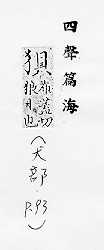 四聲篇海
狽
蓋切
狼也
(犬部, P.93)